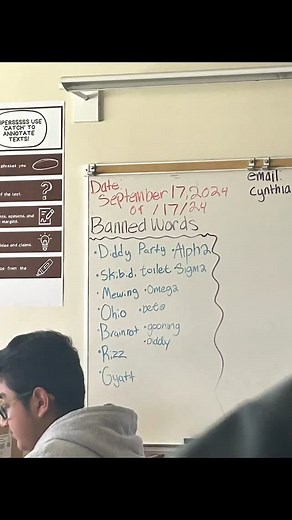 PERSSSSS USE
'CATCH' TO
ANNOTATE
TEXTS!
phrases you
?
of the text.
ideas and claims.
from the
Date:
September 17, 2024
09/17/24
Banned Words
• Diddy Party • Alpha
• Skibidi toilet Sigma
• Mewing • Omega
• Ohio • beta
• Brainrot • gooning
• Diddy
• Rizz
• Gyatt
email:
Cynthia